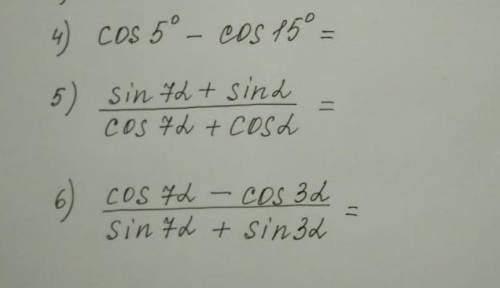 4) cos 5° − cos 15° =
5) sin 7α + sin α
cos 7α + cos α =
6) cos 7α − cos 3α
sin 7α + sin 3α =